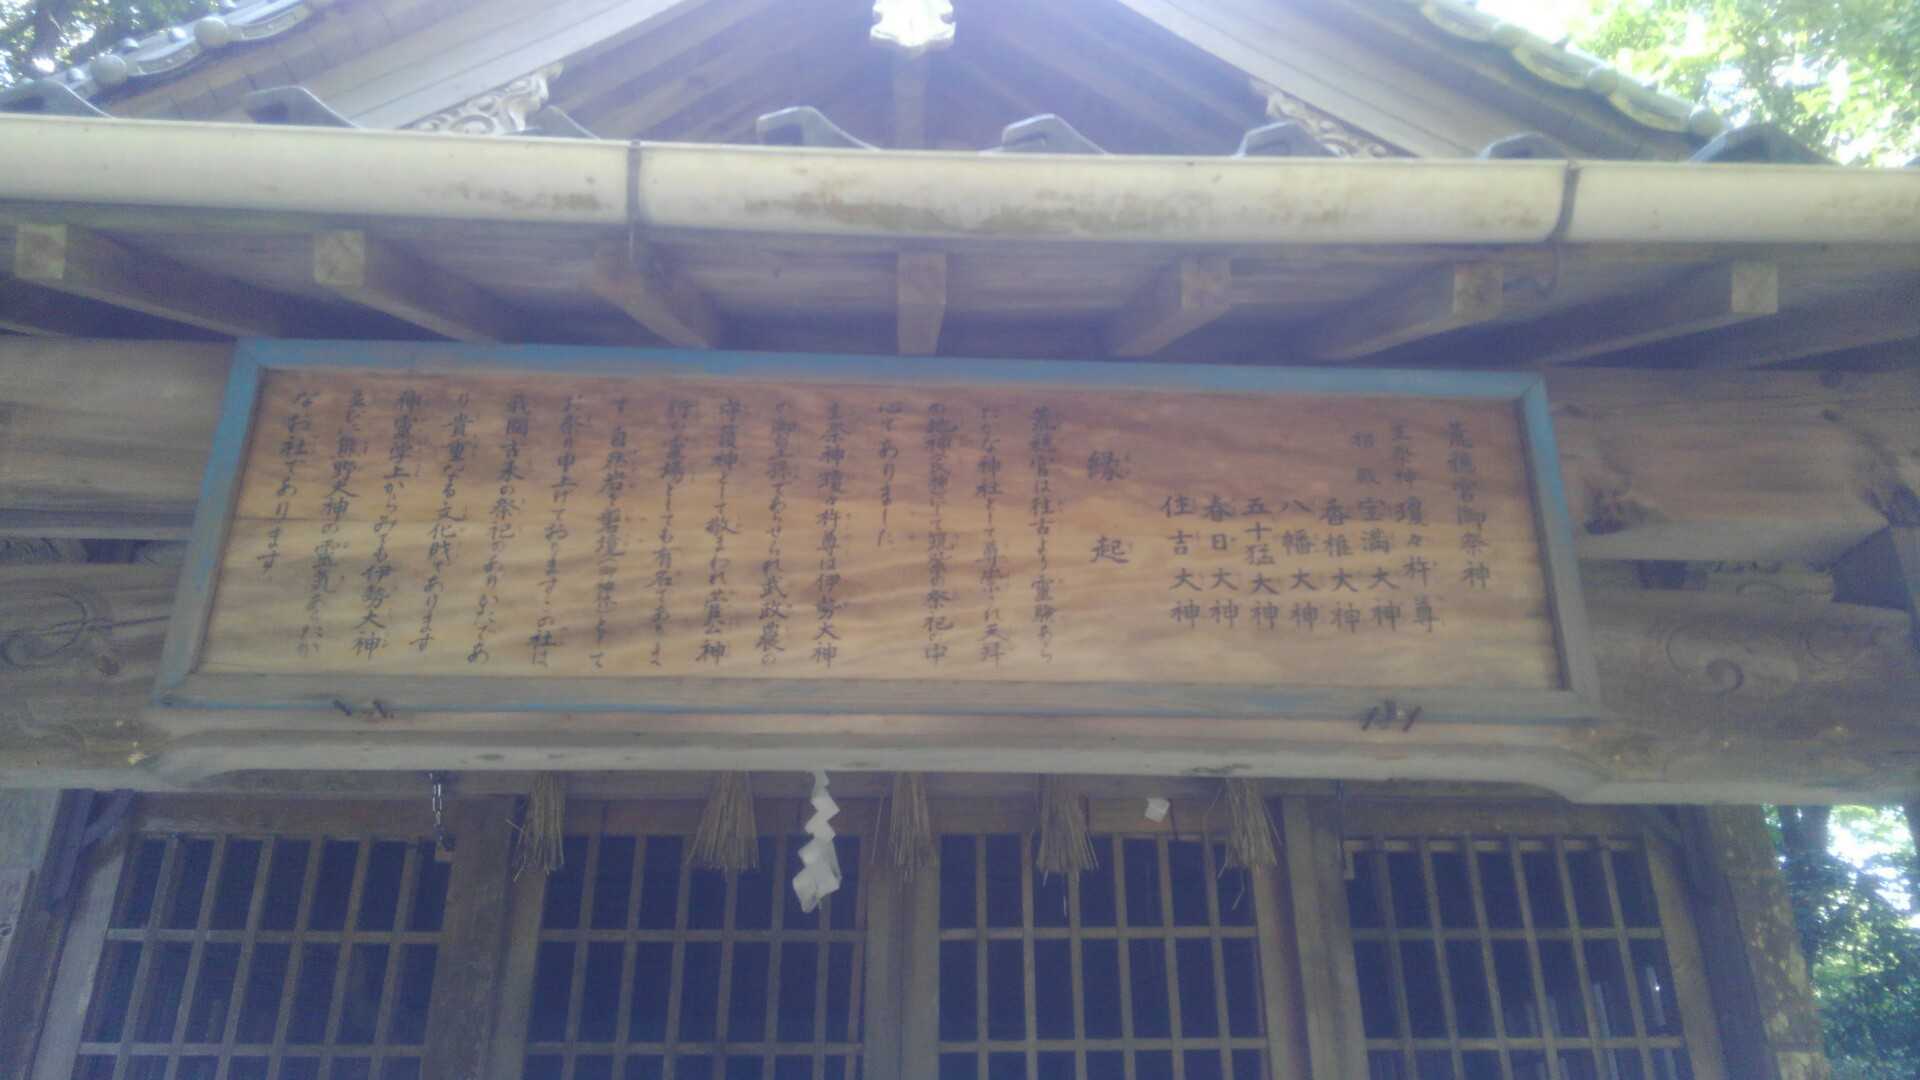 荒穂宮御祭神
主祭神 瓊々杵尊
相殿 宝満大神
香椎大神
八幡大神
五十猛大神
春日大神
住吉大神
縁起
荒穂宮は往古より霊験あら
たかな神社として尊崇され天拝
の地神又神にして筑紫の祭祀の中
心でありました
主祭神瓊々杵尊は伊勢大神
の御皇孫であらせられ武政農の
守護神として敬まわれ菅公神
行の霊場としても有名でありま
す 自然岩を磐境(御神体)として
お祭り申上げております この社は
我国古来の祭祀のありかたであ
り貴重なる文化財であります
神霊学上からみても伊勢大神
並に熊野大神の霊気あらたか
なお社であります